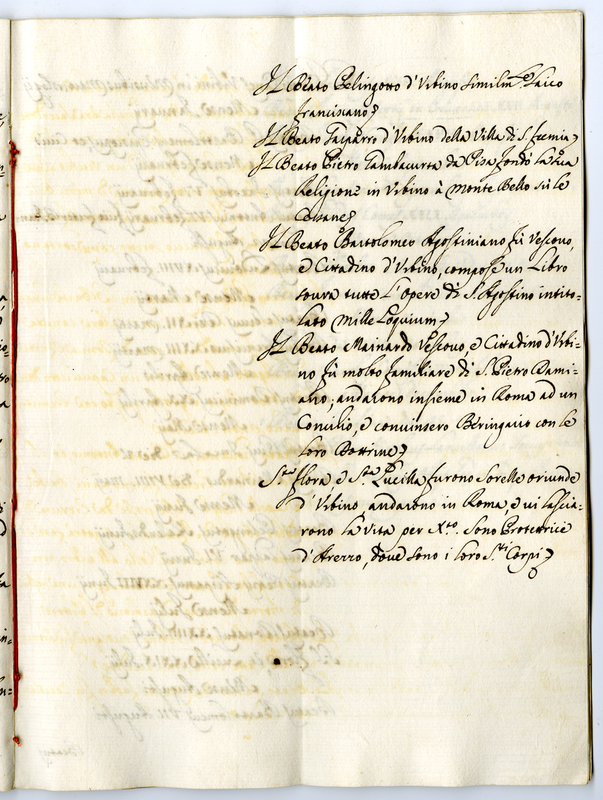 Il Beato Pelingotto d'Urbino similm.te Laico
Franciscano
Il Beato Gasparro d'Urbino della Villa di S. Eremia
Il Beato Pietro Gambacurta da Pisa fondò la sua
Religione in Urbino à Monte Bello sù le
Cesane
Il Beato Bartolomeo Agostiniano fù Vescovo,
e Cittadino d'Urbino, compose un Libro
soura tutte l'Opere di S. Agostino intito=
lato Milleloquium
Il Beato Mainardo Vescovo e Cittadino d'Urbi=
no fù molto familiare di S. Pietro Dami=
ano; andarono insieme in Roma ad un
Concilio, e convinsero Beringario con le
loro Dottrine
S.ta Flora, e S.ta Lucilla furono Sorelle oriunde
d'Urbino, andarono in Roma, e vi lascia=
rono la Vita per X.to. Sono Protettrice
d'Arezzo, dove sono i loro S.ti Corpi